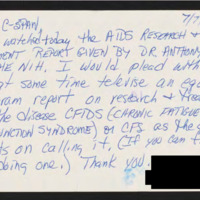 C-SPAN, 7/7
watched today the AIDS RESEARCH &
MENT REPORT GIVEN BY DR ANTHONY
THE N.I.H. I would plead with
at some time televise an equ
ram report on research & trea
the disease CFIDS (CHRONIC FATIGUE
UNCTION SYNDROME) or CFS as the
ds on calling it. (If you can t
doing one.) Thank you.